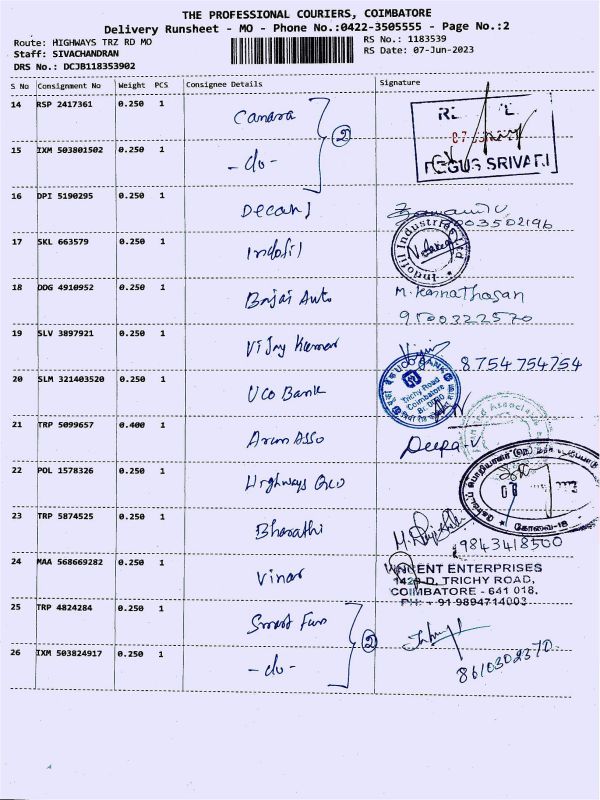 THE PROFESSIONAL COURIERS, COIMBATORE
Delivery Runsheet - MO - Phone No.:0422-3505555 - Page No.:2
Route: HIGHWAYS TRZ RD MO
RS No.: 1183539
Staff: SIVACHANDRAN
RS Date: 07-Jun-2023
DRS No.: DCJB118353902
S No Consignment No Weight PCS Consignee Details Signature
14 RSP 2417361 0.250 1 Canara
2
15 IXM 503801502 0.250 1 -do-
16 DPI 5190295 0.250 1
17 SKL 663579 0.250 1 Indofil
Indofil Industries Ltd
18 DDG 4910952 0.250 1 Bajaj Auto
9500322570
19 SLV 3897921 0.250 1 Vijay Kumar
8754754754
20 SLM 321403520 0.250 1 UCO Bank
UCO BANK
Trichy Road
Coimbatore
21 TRP 5099657 0.400 1 Arun Asso Deepa.V
22 POL 1578326 0.250 1 Highways
கோவை-18
23 TRP 5874525 0.250 1 Bharathi
9843418500
24 MAA 568669282 0.250 1
ENTERPRISES
D, TRICHY ROAD,
COIMBATORE - 641 018.
PH: +91 9894714003
25 TRP 4824284 0.250 1 Smart Fun
2
26 IXM 503824917 0.250 1 -do-
8610302370